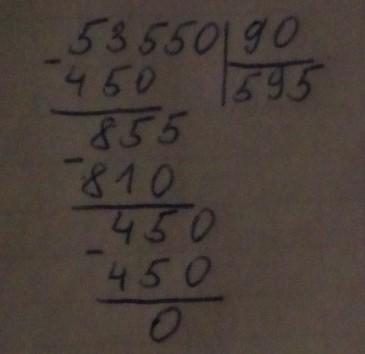 - 53550 | 90
450 595
855
- 810
450
- 450
0